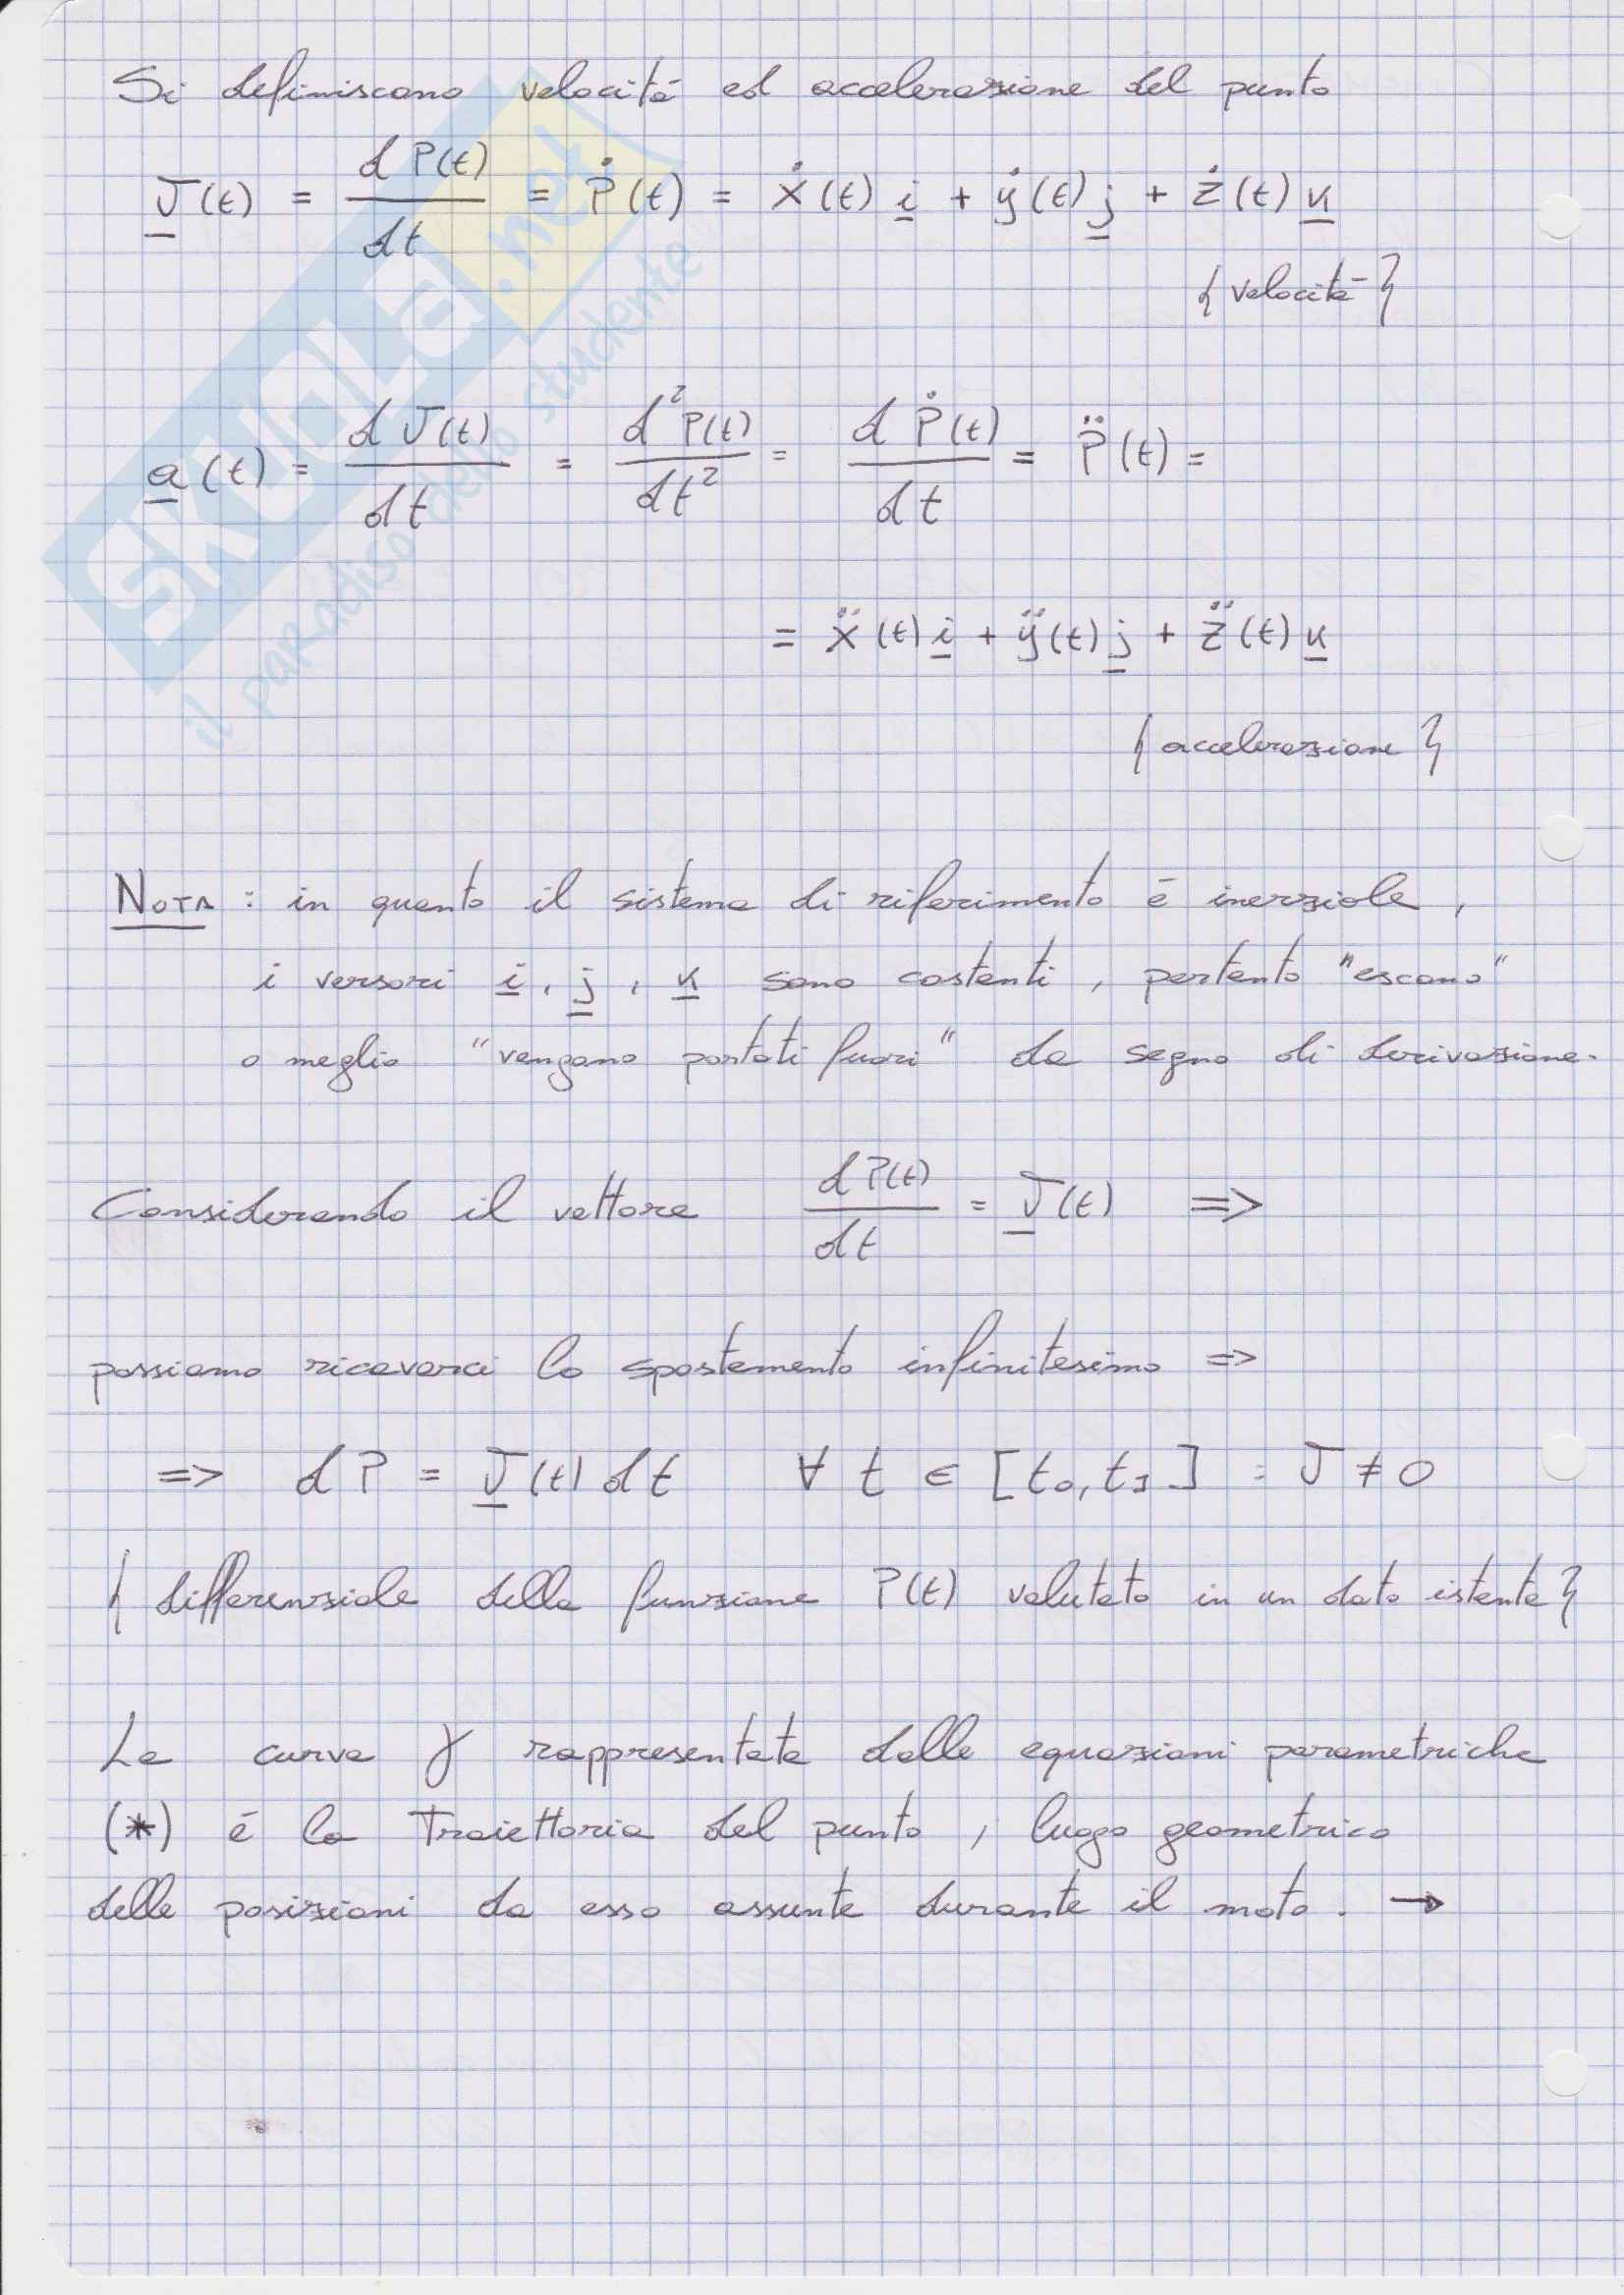 Si definiscono velocità ed accelerazione del punto
v(t) = dP(t)/dt = Ṗ(t) = ẋ(t) i + ẏ(t) j + ż(t) k
{velocità}
a(t) = dv(t)/dt = d²P(t)/dt² = dṖ(t)/dt = P̈(t) =
= ẍ(t) i + ÿ(t) j + z̈(t) k
{accelerazione}
NOTA : in quanto il sistema di riferimento è inerziale,
i versori i, j, k sono costanti, pertanto "escono"
o meglio "vengono portati fuori" da segno di derivazione.
Considerando il vettore dP(t)/dt = v(t) =>
possiamo ricavarci lo spostamento infinitesimo =>
=> dP = v(t) dt ∀ t ∈ [t₀, t₁] : v ≠ 0
{differenziale della funzione P(t) valutato in un dato istante}
La curva γ rappresentata dalle equazioni parametriche
(*) è la Traiettoria del punto, luogo geometrico
delle posizioni da esso assunte durante il moto. →
SKUOLA.net
il paradiso dello studente